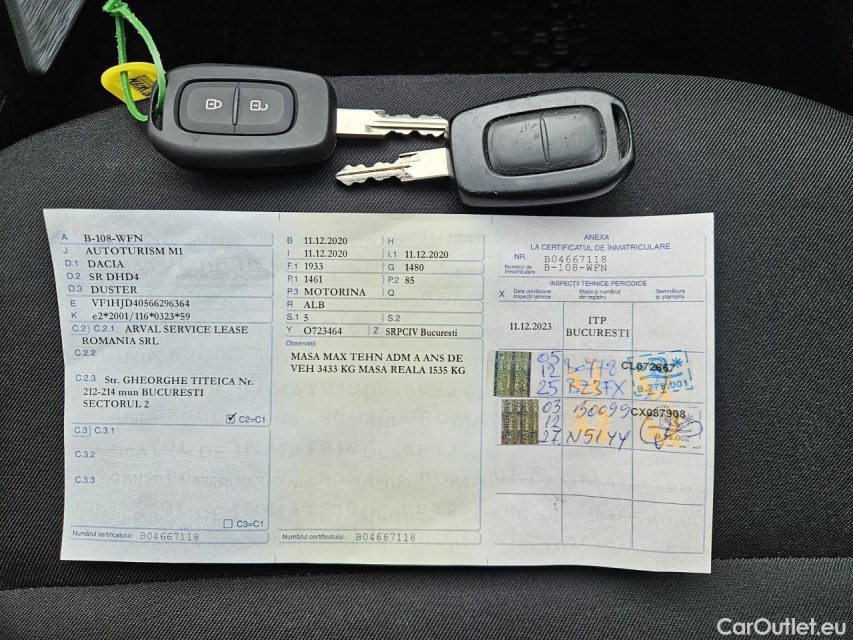 A B-108-WFN
J AUTOTURISM M1
D.1 DACIA
D.2 SR DHD4
D.3 DUSTER
E VF1HJD40566296364
K e2*2001/116*0323*59
C.2 C.2.1 ARVAL SERVICE LEASE
ROMANIA SRL
C.2.2
C.2.3 Str. GHEORGHE TITEICA Nr.
212-214 mun BUCURESTI
SECTORUL 2
C2=C1
C.3 C.3.1
C.3.2
C.3.3
C3=C1
Numărul certificatului: B04667118
B 11.12.2020 H
I 11.12.2020 I.1 11.12.2020
F.1 1933 G 1480
P.1 1461 P.2 85
P.3 MOTORINA Q
R ALB
S.1 5 S.2
Y O723464 Z SRPCIV Bucuresti
Observaţii
MASA MAX TEHN ADM A ANS DE
VEH 3433 KG MASA REALA 1535 KG
Numărul certificatului: B04667118
ANEXA
LA CERTIFICATUL DE ÎNMATRICULARE
NR. B04667118
Numărul de înmatriculare B-108-WFN
INSPECŢII TEHNICE PERIODICE
X Data următoarei inspecţii tehnice Staţia şi numărul din registru Semnătura şi ştampila
11.12.2023 ITP
BUCURESTI
05
12
25 BZ37X
CL072667
B.778.001
03
12
27 N51YY
150099
CX087908
CarOutlet.eu